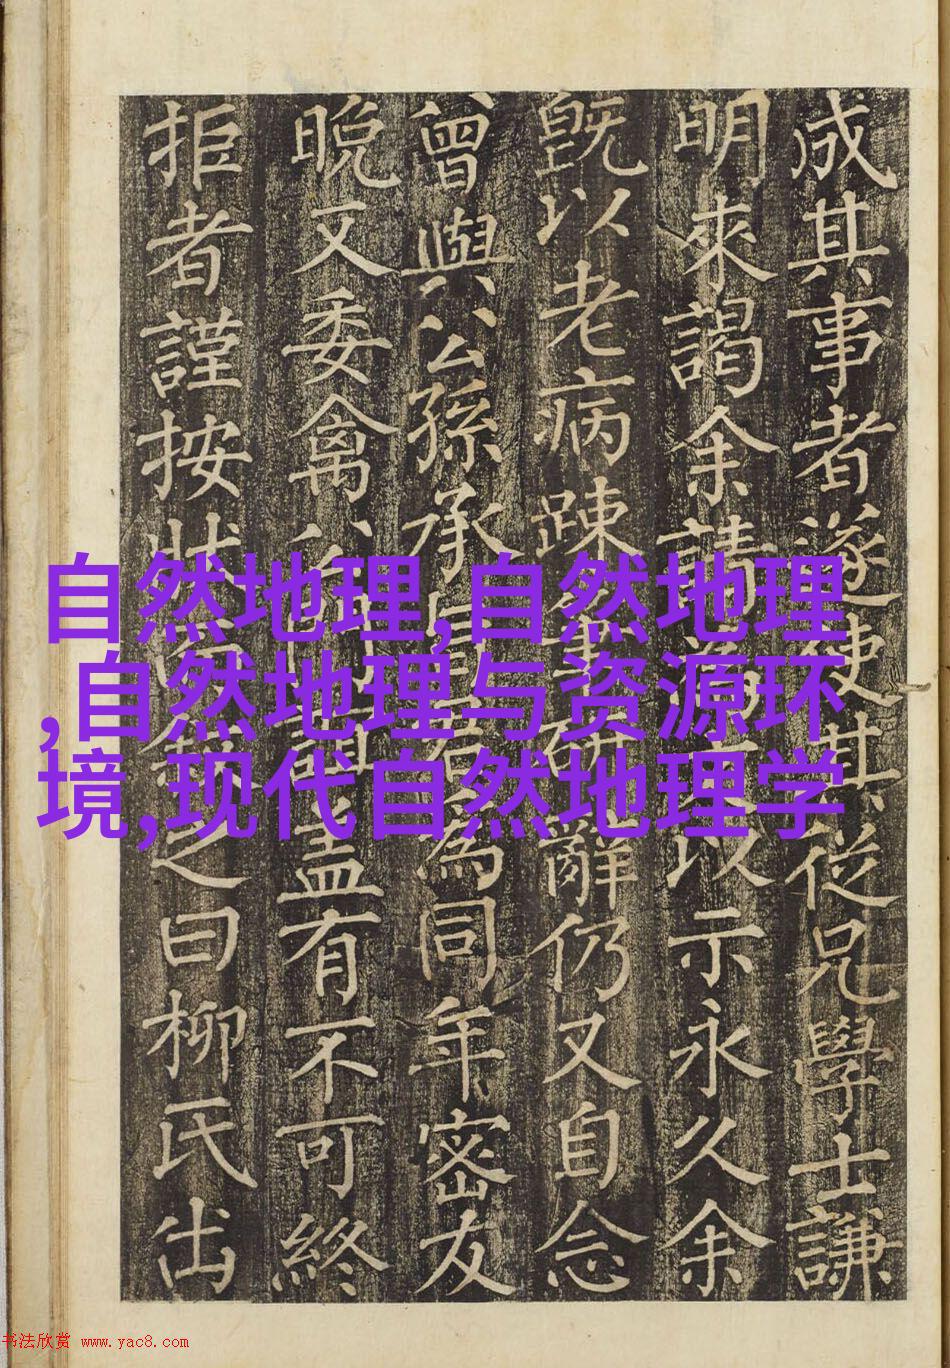 成其事者遂使其從兄學士謙
明來謁余請為以示永久余
既以老病踈筆研辭仍又自念
曾與公孫承旨君為同年密友
晚又委禽公門盖有不可終
拒者謹按狀之曰柳氏出
自然地理,自然地理
,自然地理与资源环
境,现代自然地理学
书法欣赏 www.yac8.com